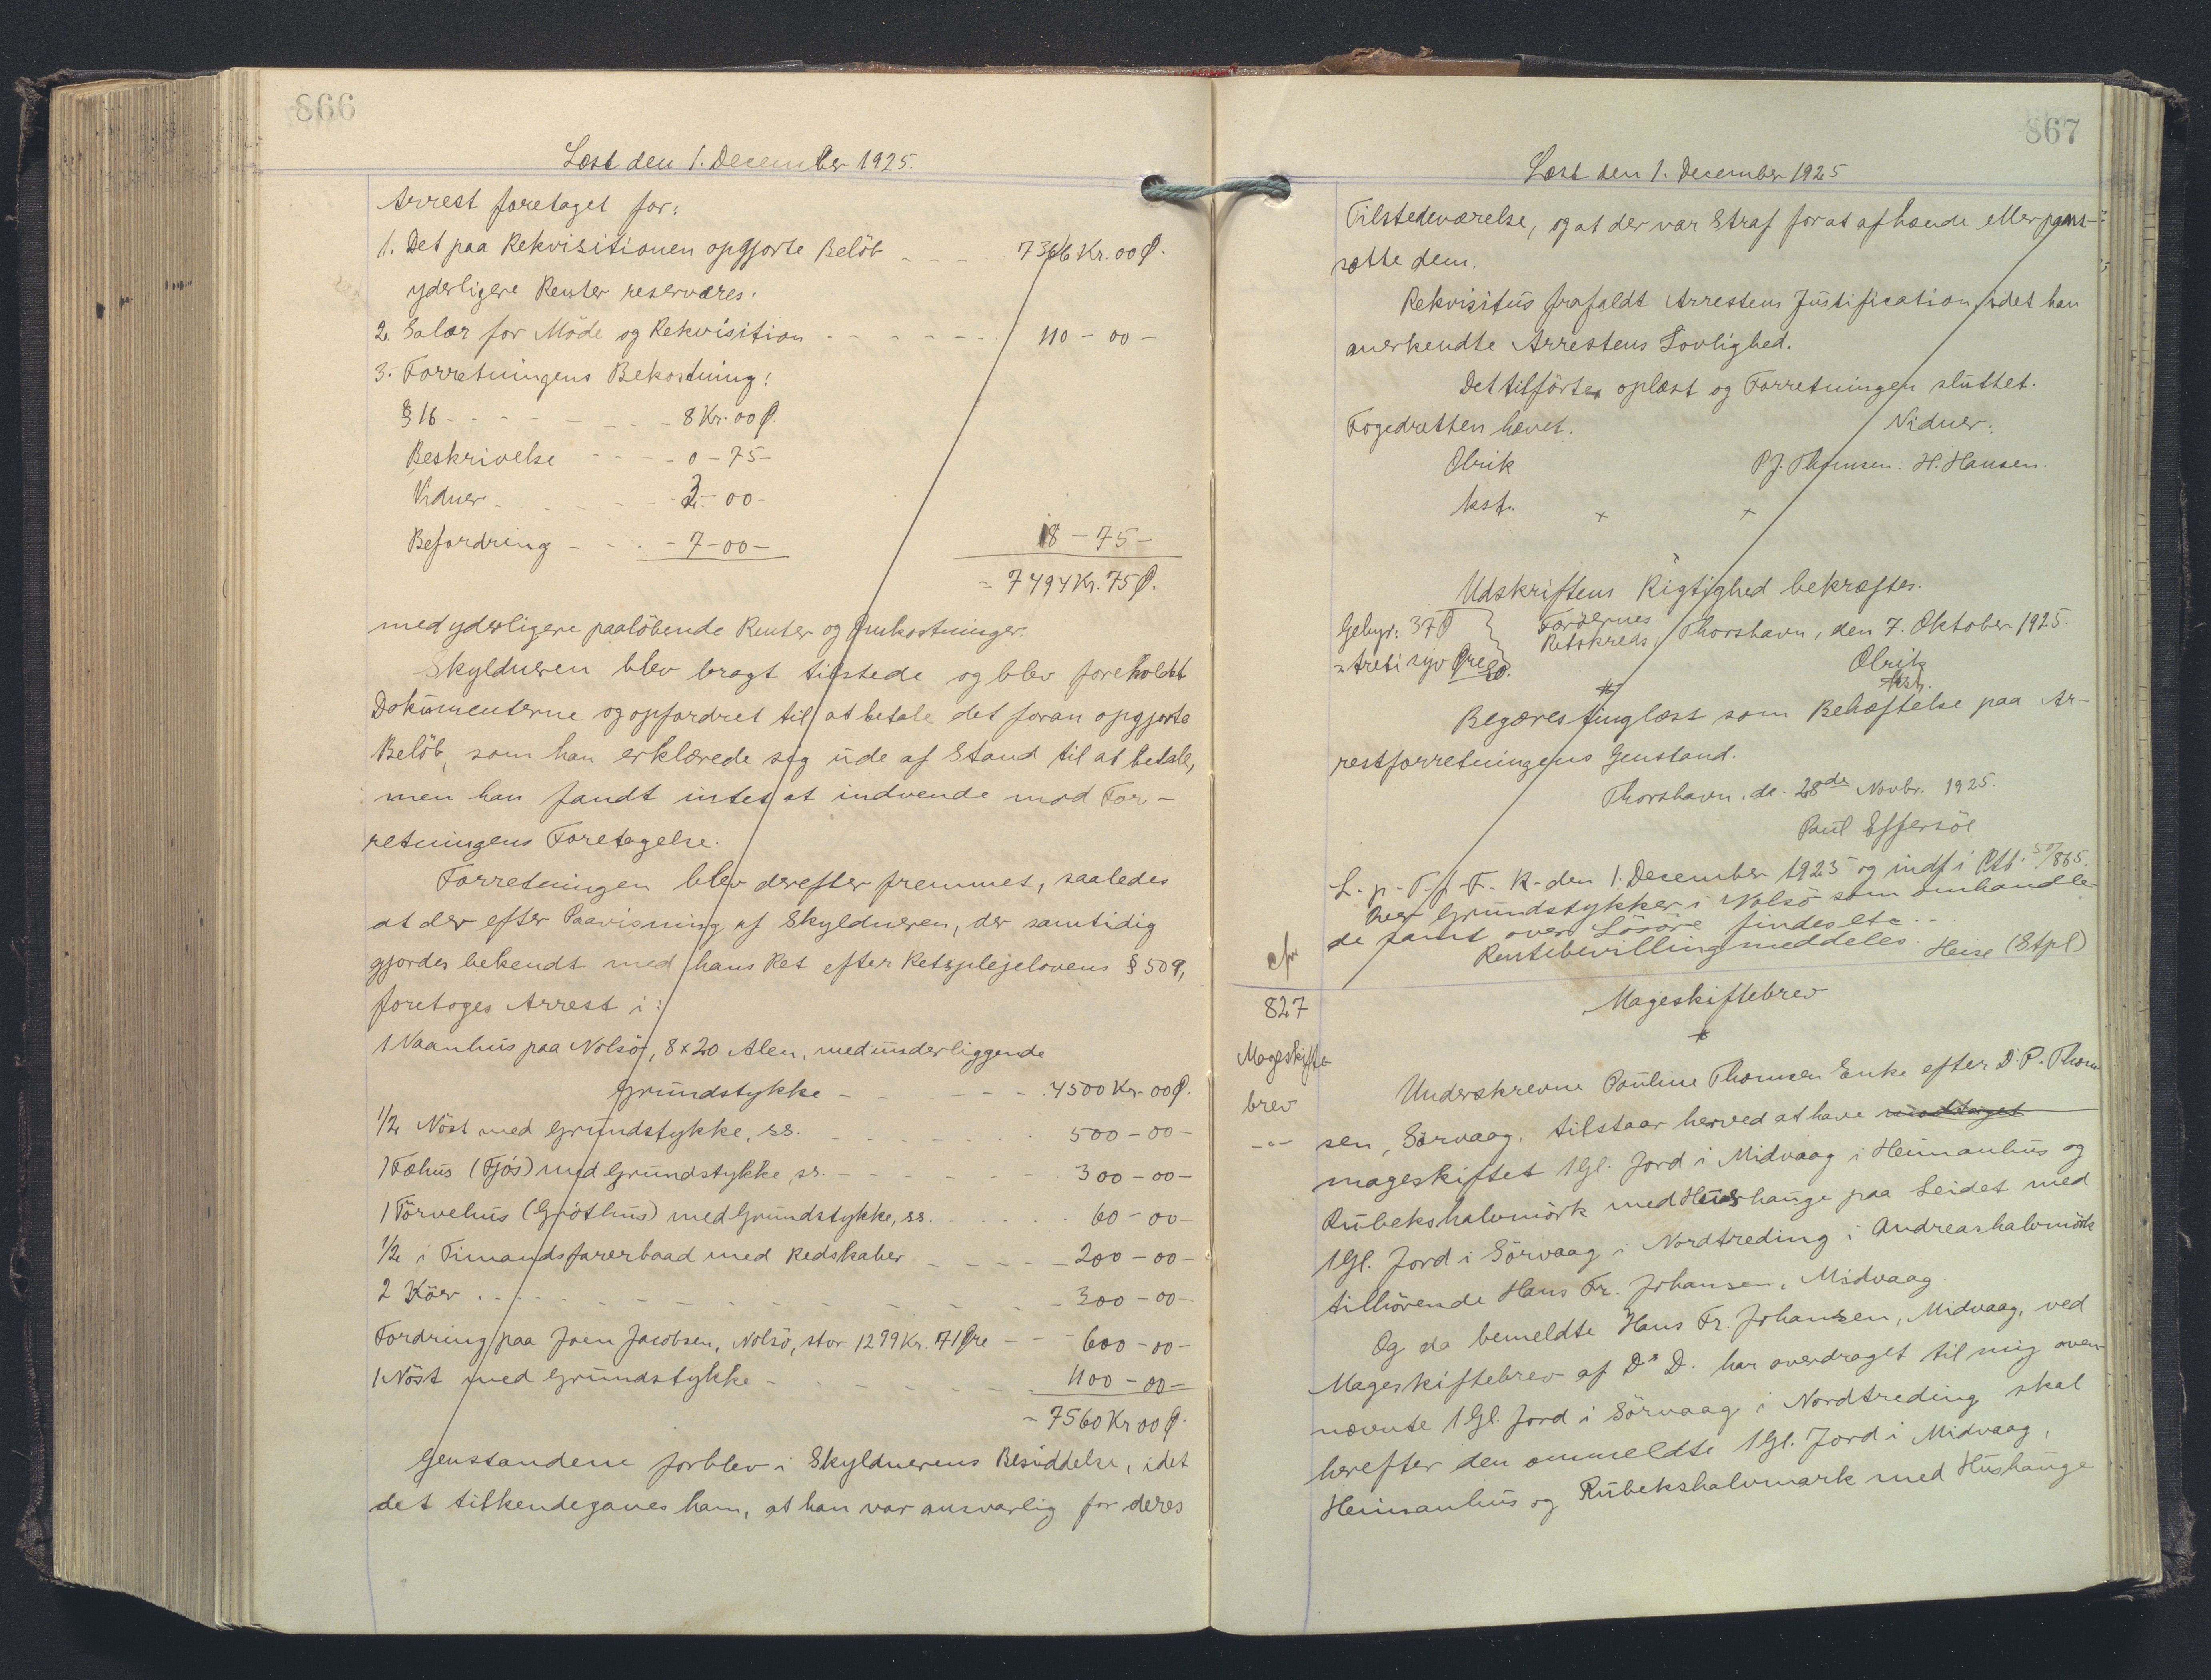 866
Læst den 1. December 1925.
Arrest foretaget for:
1. Det paa Rekvisitionen opgjorte Beløb - - - - 7366 Kr. 00 Ø.
yderligere Renter reserveres.
2. Salær for Möde og Rekvisition - - - - - - 110 - 00 -
3. Forretningens Bekostning:
§ 16 - - - - - - - 8 Kr. 00 Ø.
Beskrivelse - - - - 0 - 75 -
Vidner - - - - - 3 - 00 -
Befordring - - - - 7 - 00 - 18 - 75 -
= 7494 Kr. 75 Ø.
med yderligere paaløbende Renter og Omkostninger.
Skylduren blev bragt tilstede og blev foreholdt
Dokumenterne og opfordret til at betale det foran opgjorte
Beløb, som han erklærede sig ude af Stand til at betale,
men han fandt intet at indvende mod For-
retningens Foretagelse.
Forretningen blev derefter fremmet, saaledes
at der efter Paavisning af Skyldneren, der samtidig
gjordes bekendt med hans Ret efter Retsplejelovens § 509,
foretoges Arrest i:
1 Vaanhus paa Nolsö, 8 x 20 Alen, med underliggende
Grundstykke - - - - - 4500 Kr. 00 Ø.
1/2 Nöst med Grundstykke, ss. - - - - - - 500 - 00 -
1 Fæhus (Fjós) med Grundstykke, ss. - - - - - 300 - 00 -
1 Törvehus (Gróthus) med Grundstykke, ss. . . . . . 60 - 00 -
1/2 i Timandsfarerbaad med Redskaber - - - - - 200 - 00 -
2 Köer - - - - - - - - - - - 300 - 00 -
Fordring paa Joen Jacobsen, Nolsö, stor 1299 Kr. 71 Øre - - - 600 - 00 -
1 Nöst med Grundstykke - - - - - - - 1100 - 00 -
= 7560 Kr 00 Ø.
Genstandene forblev i Skyldnerens Besiddelse, idet
det tilkendegaves ham, at han var ansvarlig for deres
867
Læst den 1. December 1925
Tilstedeværelse, og at der var Straf for at afhænde eller pant-
sætte dem.
Rekvisitus frafaldt Arrestens Justification, idet han
anerkendte Arrestens Lovlighed.
Det tilförtes oplæst og Forretningen sluttet.
Fogedretten hævet. Vidner:
Olrik P.J. Thomsen. H. Hansen.
kst.
Udskriftens Rigtighed bekræftes.
Gebyr: 37 Ø Færöernes
= treti syv Øre Retskreds, Thorshavn, den 7. Oktober 1925.
Olrik
kst.
Begæres tinglæst som Behæftelse paa Ar-
restforretningens Genstand.
Thorshavn. d. 28de Novbr. 1925.
Paul Effersöe
L. p. T. f. F. R. den 1. December 1925 og indf. i Ptb. 50/865.
Over Grundstykker i Nolsö som omhandle
de samt over Lösöre findes etc. . .
Rentebevilling meddeles.
Heise (Stpl)
cfr
827
Mageskifte-
brev
Mageskiftebrev
Underskrevne Pauline Thomsen Enke efter D. P. Thom
sen, Sörvaag, tilstaar herved at have modtaget
mageskiftet 1 Gl. Jord i Midvaag i Heimanhus og
Rubekshalvmörk med Hushauge paa Leidet med
1 Gl. Jord i Sörvaag i Nordtreding i Andreashalvmörk
tilhörende Hans Fr. Johansen, Midvaag.
Og da bemeldte Hans Fr. Johansen, Midvaag, ved
Mageskiftebrev af Ds D. har overdraget til mig oven
nævnte 1 Gl. Jord i Sörvaag i Nordtreding skal
herefter den ommeldte 1 Gl. Jord i Midvaag,
Heimanhus og Rubekshalvmark med Hushauge